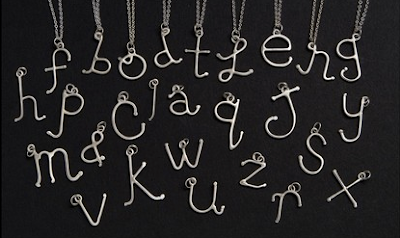 f b o d t l e n g
h p c i a q J y
m & k w z s
v u r x